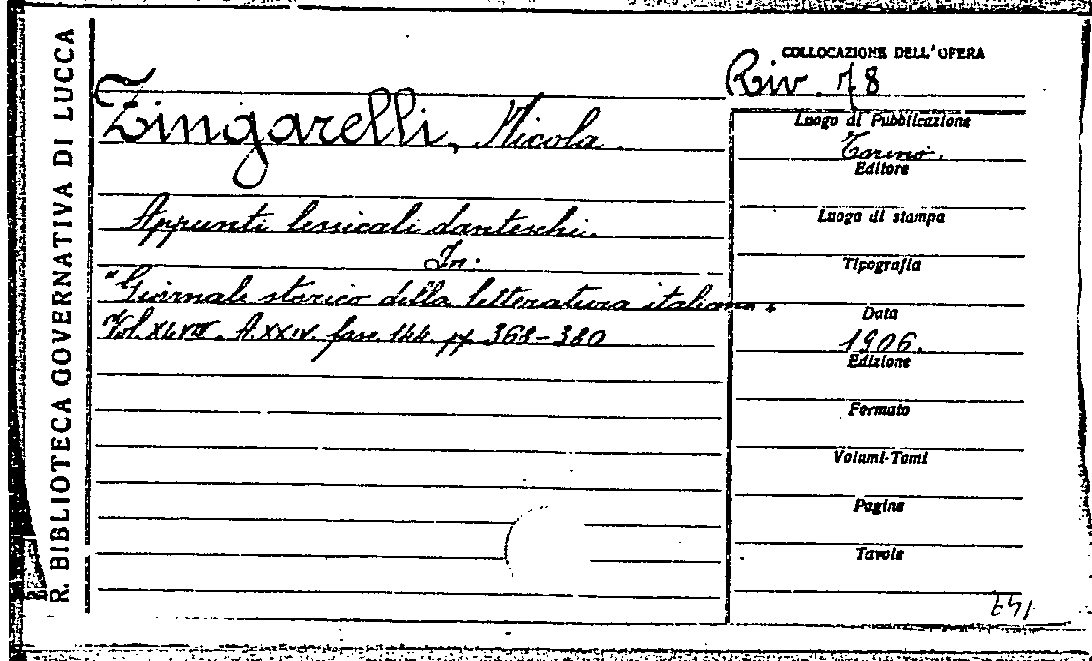 R. BIBLIOTECA GOVERNATIVA DI LUCCA
COLLOCAZIONE DELL'OPERA
Riv. 78
Zingarelli, Nicola.
Appunti lessicali danteschi.
In:
"Giornale storico della letteratura italiana.
Vol. XLVIII. A. XXIV. fasc. 144. pp. 368-380
Luogo di Pubblicazione
Torino.
Editore
Luogo di stampa
Tipografia
Data
1906.
Edizione
Formato
Volumi-Tomi
Pagine
Tavole